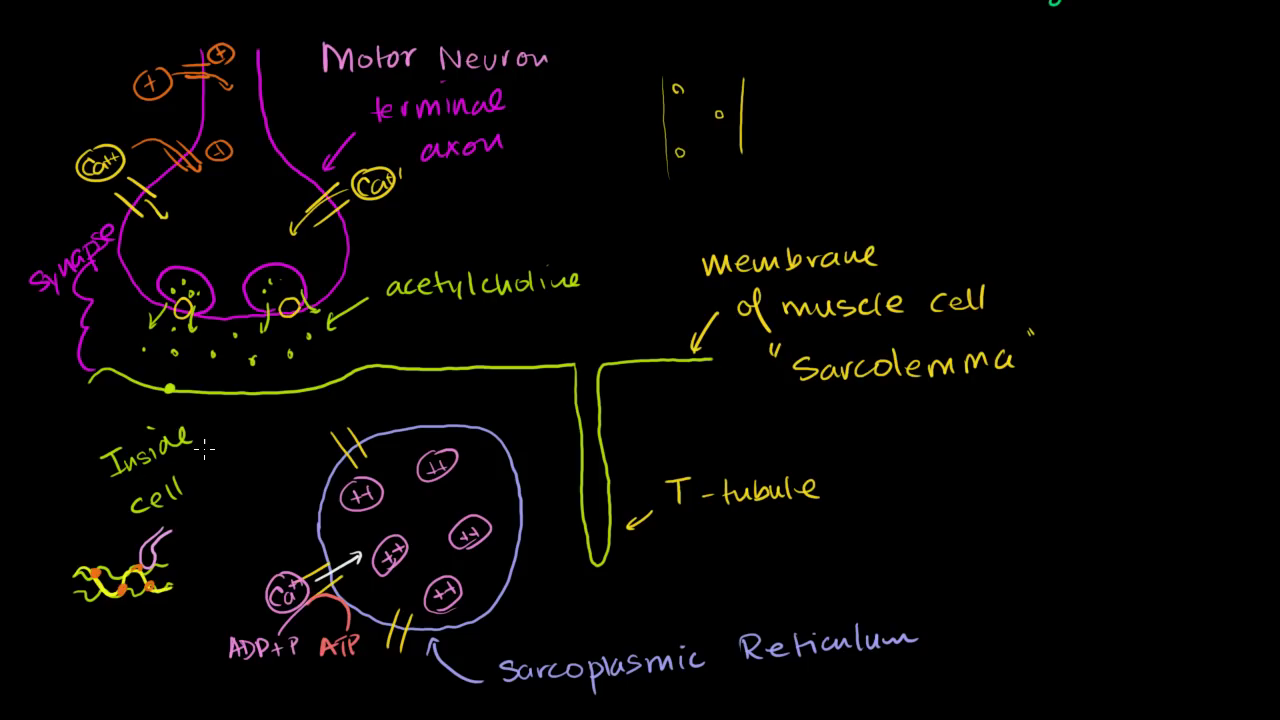 Motor Neuron
terminal
axon
+
+
+
Ca++
Ca++
synapse
acetylcholine
membrane
of muscle cell
"Sarcolemma"
Inside
cell
T-tubule
++
++
++
++
++
Ca++
ADP+P ATP
Sarcoplasmic Reticulum